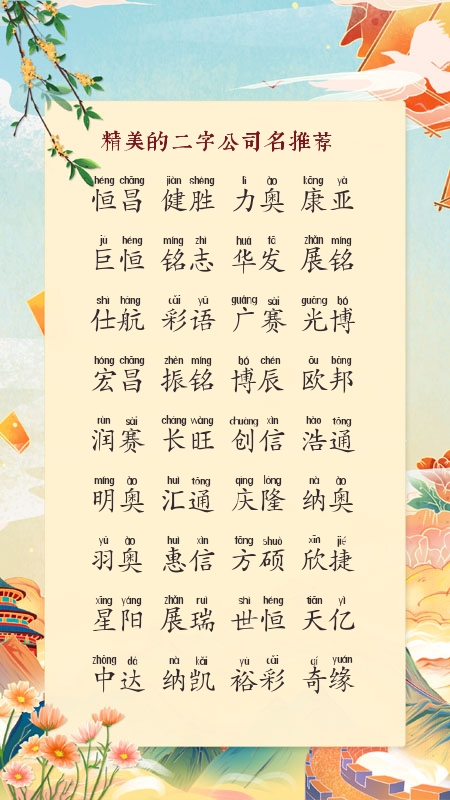 精美的二字公司名推荐
héng chāng jiàn shèng lì ào kāng yà
恒昌 健胜 力奥 康亚
jù héng míng zhì huá fā zhǎn míng
巨恒 铭志 华发 展铭
shì háng cǎi yǔ guǎng sài guāng bó
仕航 彩语 广赛 光博
hóng chāng zhèn míng bó chén ōu bāng
宏昌 振铭 博辰 欧邦
rùn sài cháng wàng chuàng xìn hào tōng
润赛 长旺 创信 浩通
míng ào huì tōng qìng lóng nà ào
明奥 汇通 庆隆 纳奥
yǔ ào huì xìn fāng shuò xīn jié
羽奥 惠信 方硕 欣捷
xīng yáng zhǎn ruì shì héng tiān yì
星阳 展瑞 世恒 天亿
zhōng dá nà kǎi yù cǎi qí yuán
中达 纳凯 裕彩 奇缘